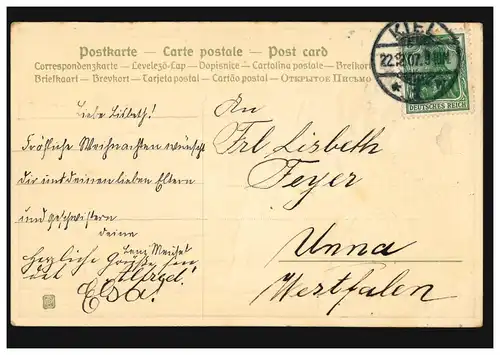 Postkarte – Carte postale – Post card
Correspondenzkarte – Levelező-Lap – Dopisnice – Cartolina postale – Brefkort
Briefkaart – Brevkort – Tarjeta postal – Cartão postal – Открытое Письмо
KIEL
22.12.07
DEUTSCHES REICH
Liebe Lisbeth!
Fröhliche Weihnachten wünscht
dir und deinen lieben Eltern
und geschwistern
deine
Elsa!
Herzliche Grüße
An
Frl Lisbeth
Feyer
Unna
Westfalen